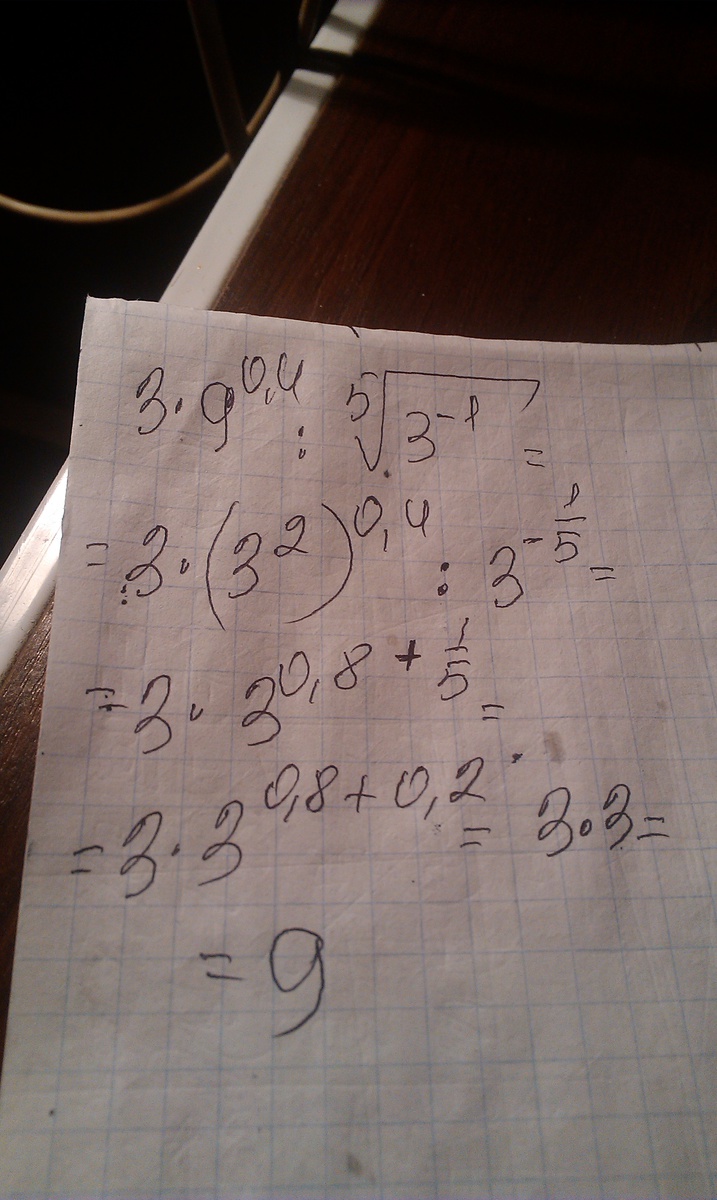 3 · 9^{0,4} : \sqrt[5]{3^{-1}} =
= 3 · (3^2)^{0,4} : 3^{-\frac{1}{5}} =
= 3 · 3^{0,8 + \frac{1}{5}} =
= 3 · 3^{0,8 + 0,2} = 3 · 3 =
= 9